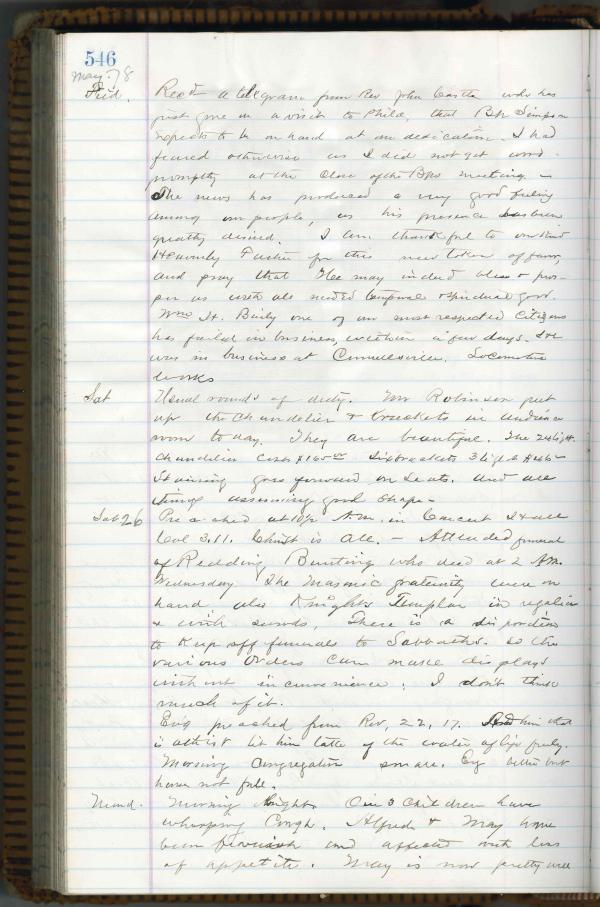 546
May. 78
Frid. Rec'd a telegram from Rev John Castle who has
just gone on a visit to Phila, that Bp. Simpson
expects to be on hand at our dedication. I had
feared otherwise as I did not get word
promptly at the close of the Bps meeting. —
The news has produced a very good feeling
among our people, as his presence has been
greatly desired. I am thankful to our kind
Heavenly Father for this new token of favor
and pray that He may indeed bless & pros-
per us with all needed temporal & spiritual good.
Wm H. Baily one of our most respected citizens
has failed in business, within a few days. He
was in business at Connellsville. Locomotive
works
Sat Usual rounds of duty. Mr Robinson put
up the Chandelier & brackets in audience
room to day. They are beautiful. The 24 light
Chandelier cost $165 00 Six brackets 3 light
Staining goes forward on seats. and all
things assuming good shape —
Sab 26 Preached at 10½ A.M. in Concert Hall
Col 3.11. Christ is All. — Attended funeral
of Redding Bunting who died at 2 A.M.
Wednesday The Masonic fraternity were on
hand, also Knights Templar in regalia
& with swords. There is a disposition
to keep off funerals to Sabbaths. so the
various Orders can make displays
without inconvenience. I don't think
much of it.
Ev'g preached from Rev, 22, 17. him that
is athirst let him take of the water of life freely.
Morning Congregation small. Ev'g better but
house not full.
Mond. Morning bright. Our 3 Children have
whooping Cough. Alfred & May have
been feverish and affected with loss
of appetite. May is now pretty well